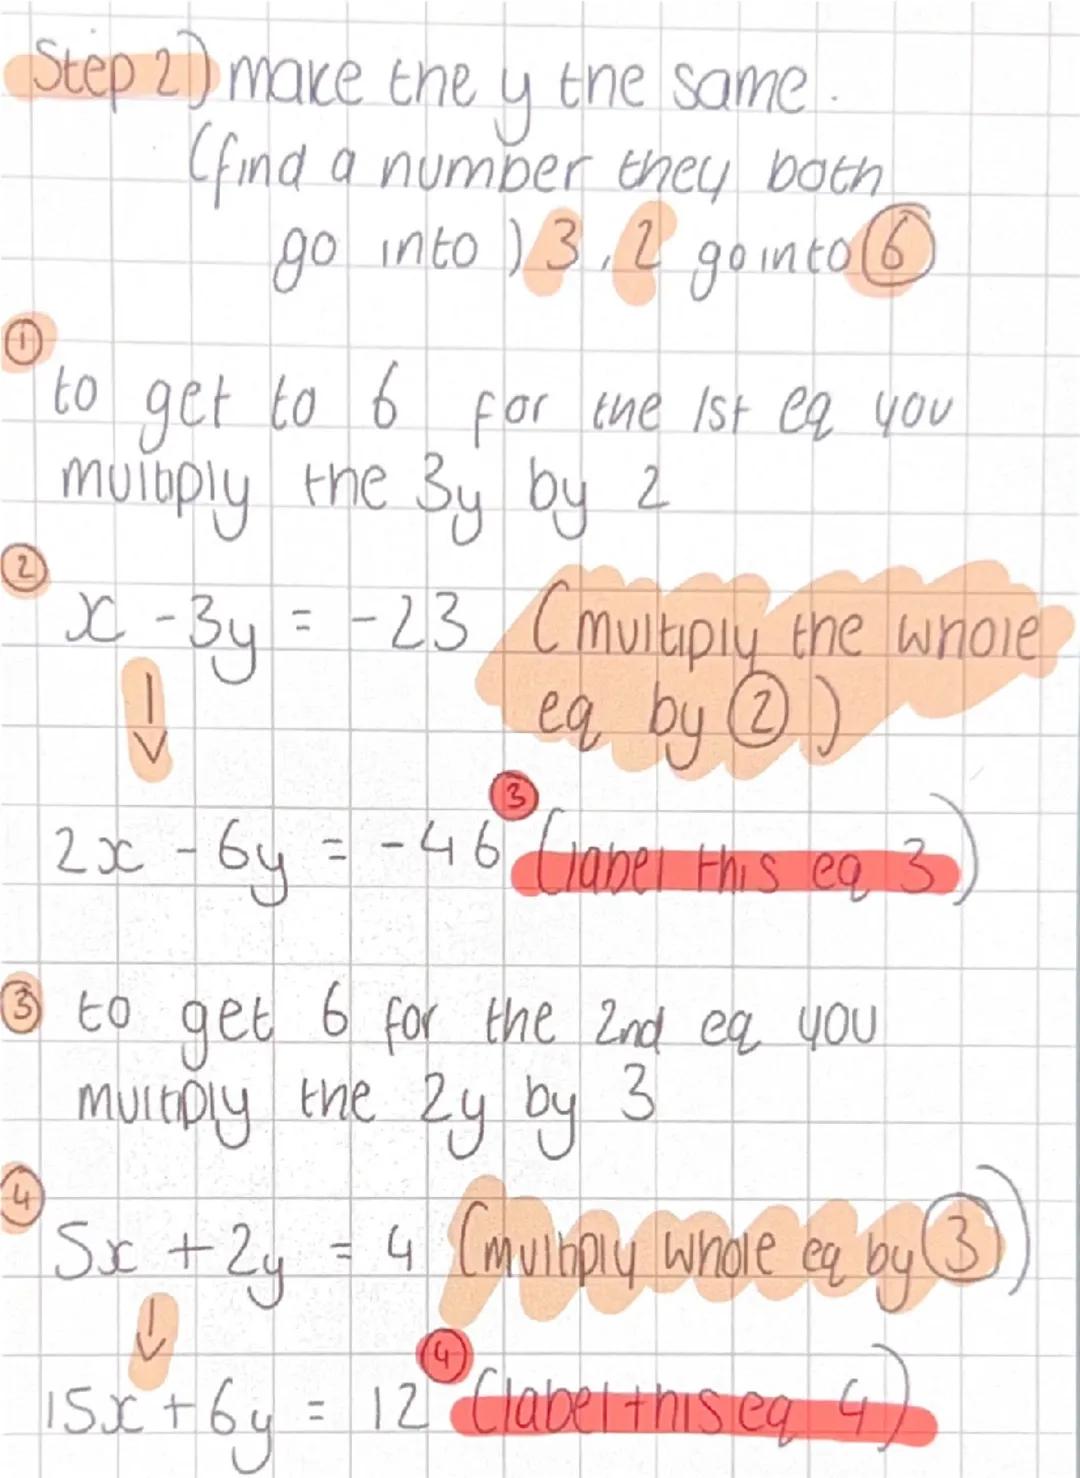 Step 2) make the y the same.
(find a number they both
go into) 3, 2 go into 6
① to get to 6 for the 1st eq you
multiply the 3y by 2
② x - 3y = -23 (multiply the whole
eq by ②)
↓
2x - 6y = -46 ③ (label this eq 3)
③ to get 6 for the 2nd eq you
multiply the 2y by 3
④ 5x + 2y = 4 (multiply whole eq by ③)
↓
15x + 6y = 12 ④ (label this eq 4)